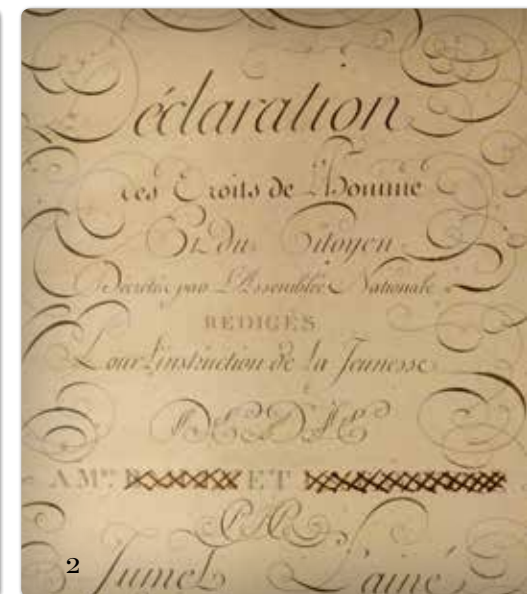 Déclaration
des Droits de L'Homme
Et du Citoyen
Décretés par L'Assemblée Nationale
REDIGÉS
Pour l'instruction de la Jeunesse
DEDIÉ
A Mrs ET
PAR
Jumel L'ainé
2